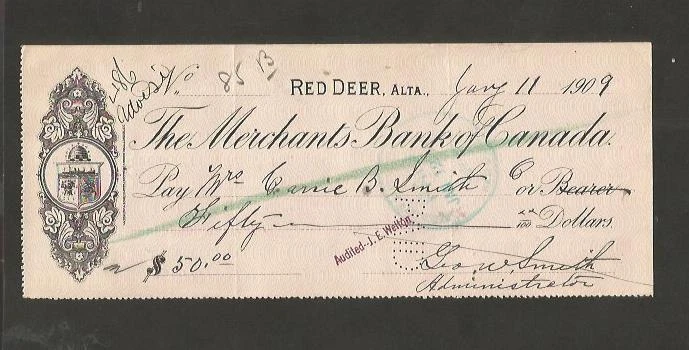 No. 85 B
advise
RED DEER, ALTA., Jany 11 1909
The Merchants Bank of Canada.
Pay Mrs Carrie B. Smith or Bearer
Fifty 00/100 Dollars.
Audited - J. E. Welton
$50.00
Geo. W. Smith
Administrator